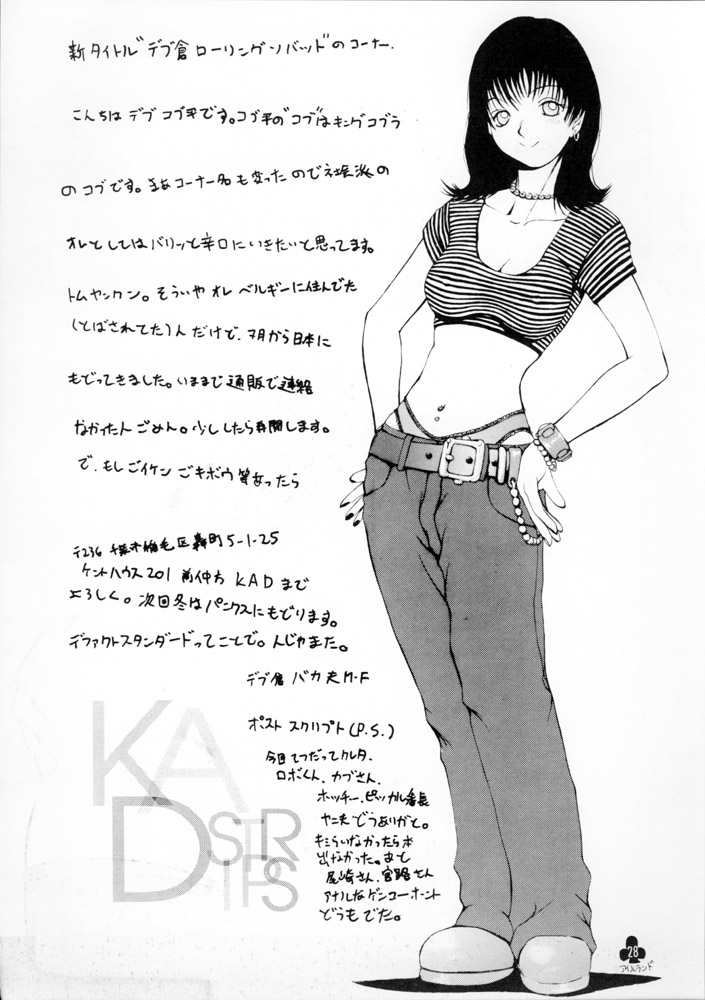 新タイトル"デブ倉ローリングソバッド"のコーナー.
こんちは デブコブ平です。コブ平の"コブ"はキングコブラ
のコブです。まあコーナー名も変ったのでネ 派の
オレとしてはバリッと辛口にいきたいと思ってます。
トムヤンクン。そういや オレ ベルギーに住んでた
(とばされてた)んだけど、7月から日本に
もどってきました。いままで通販で連絡
なかった人ごめん。少ししたら再開します。
で、もしごイケン ごキボウ等あったら
〒236 区 町5-1-25
ケントハウス201 前仲方 KADまで
よろしく。次回冬はパンクスにもどります。
デファクトスタンダードってことで。んじゃまた。
デブ倉 バカ夫M-F
ポスト スクリプト(P.S.)
今回てつだってクレタ
ロボくん、カブさん、
ホッチー、ピッカル番長
ヤニ夫どうありがと。
キミらいなかったら本
出なかった。あと
尾崎さん、宮路さん
アナルなゲンコーホント
どうもでた。
KAD
STR
IPS
28
アイルランド